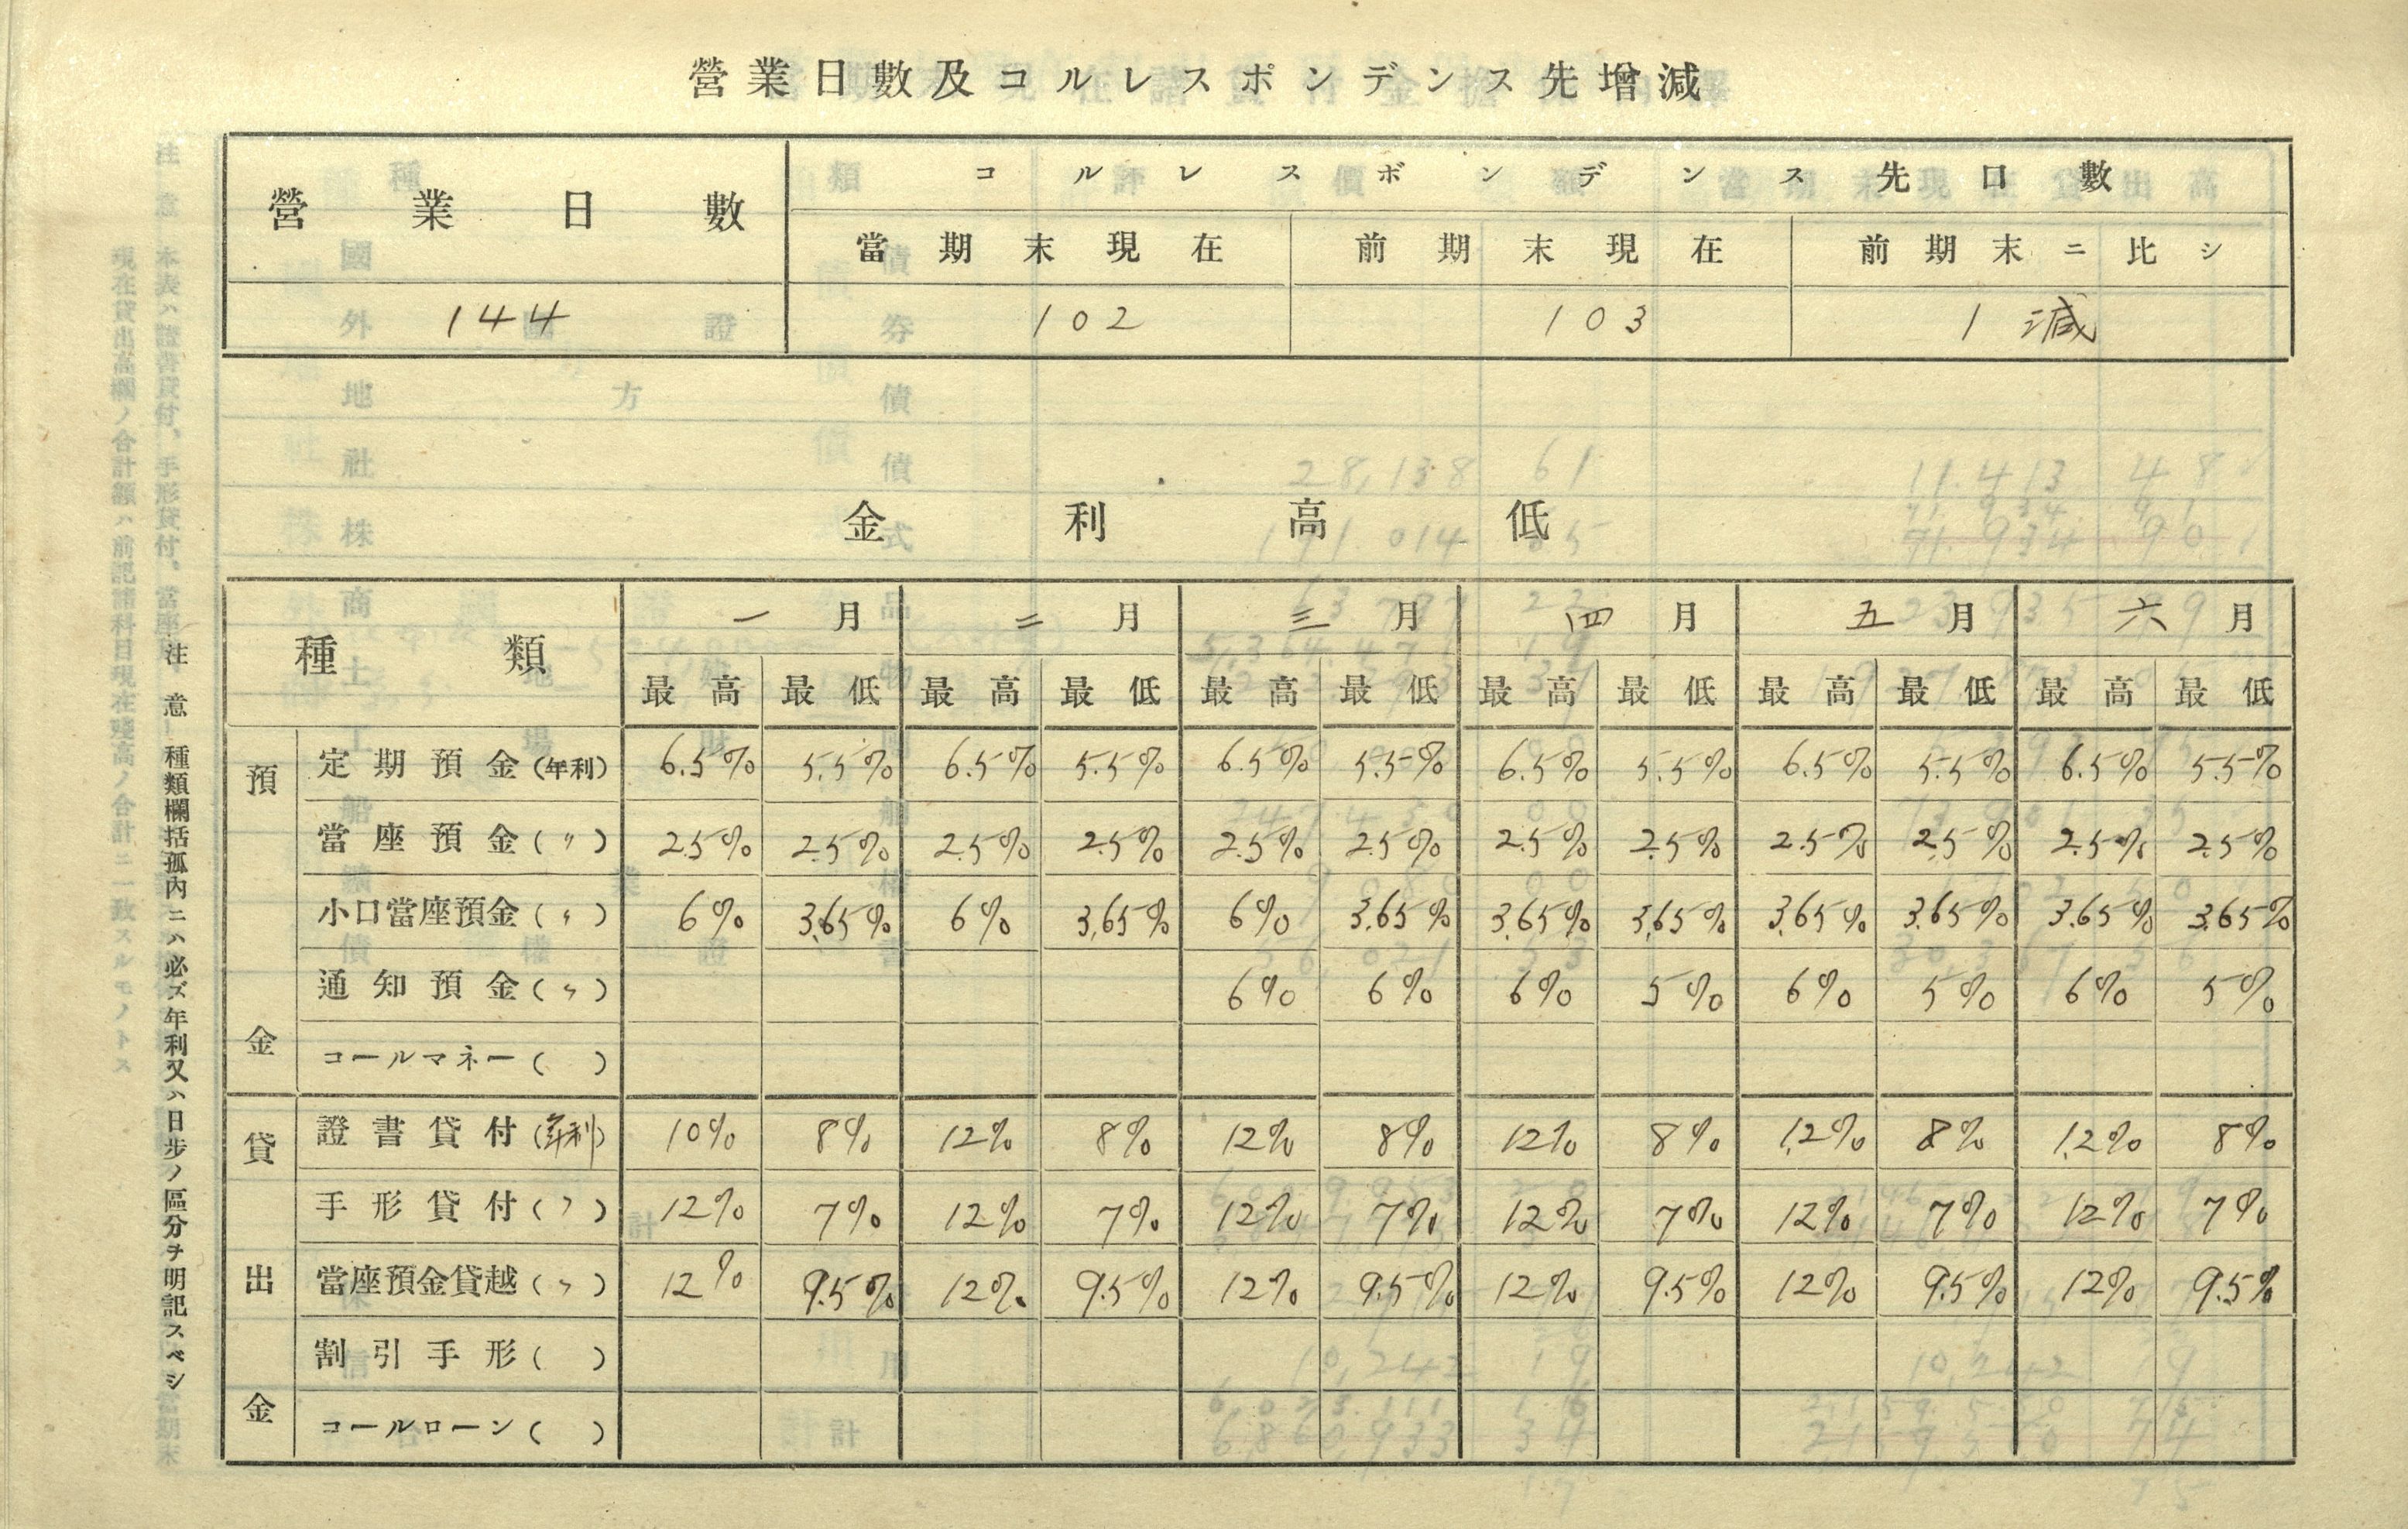 營業日數及コルレスポンデンス先增減
營業日數 コルレスポンデンス先口數
當期末現在 前期末現在 前期末ニ比シ
144 102 103 1 減
金利高低
種類 一月 二月 三月 四月 五月 六月
最高 最低 最高 最低 最高 最低 最高 最低 最高 最低 最高 最低
預金
定期預金(年利) 6.5% 5.5% 6.5% 5.5% 6.5% 5.5% 6.5% 5.5% 6.5% 5.5% 6.5% 5.5%
當座預金(〃) 2.5% 2.5% 2.5% 2.5% 2.5% 2.5% 2.5% 2.5% 2.5% 2.5% 2.5% 2.5%
小口當座預金(〃) 6% 3.65% 6% 3.65% 6% 3.65% 3.65% 3.65% 3.65% 3.65% 3.65% 3.65%
通知預金(〃) 6% 6% 6% 5% 6% 5% 6% 5%
コールマネー( )
貸出金
證書貸付(年利) 10% 8% 12% 8% 12% 8% 12% 8% 12% 8% 12% 8%
手形貸付(〃) 12% 7% 12% 7% 12% 7% 12% 7% 12% 7% 12% 7%
當座預金貸越(〃) 12% 9.5% 12% 9.5% 12% 9.5% 12% 9.5% 12% 9.5% 12% 9.5%
割引手形( )
コールローン( )
注意 種類欄括孤內ニハ必ズ年利又ハ日步ノ區分ヲ明記スベシ